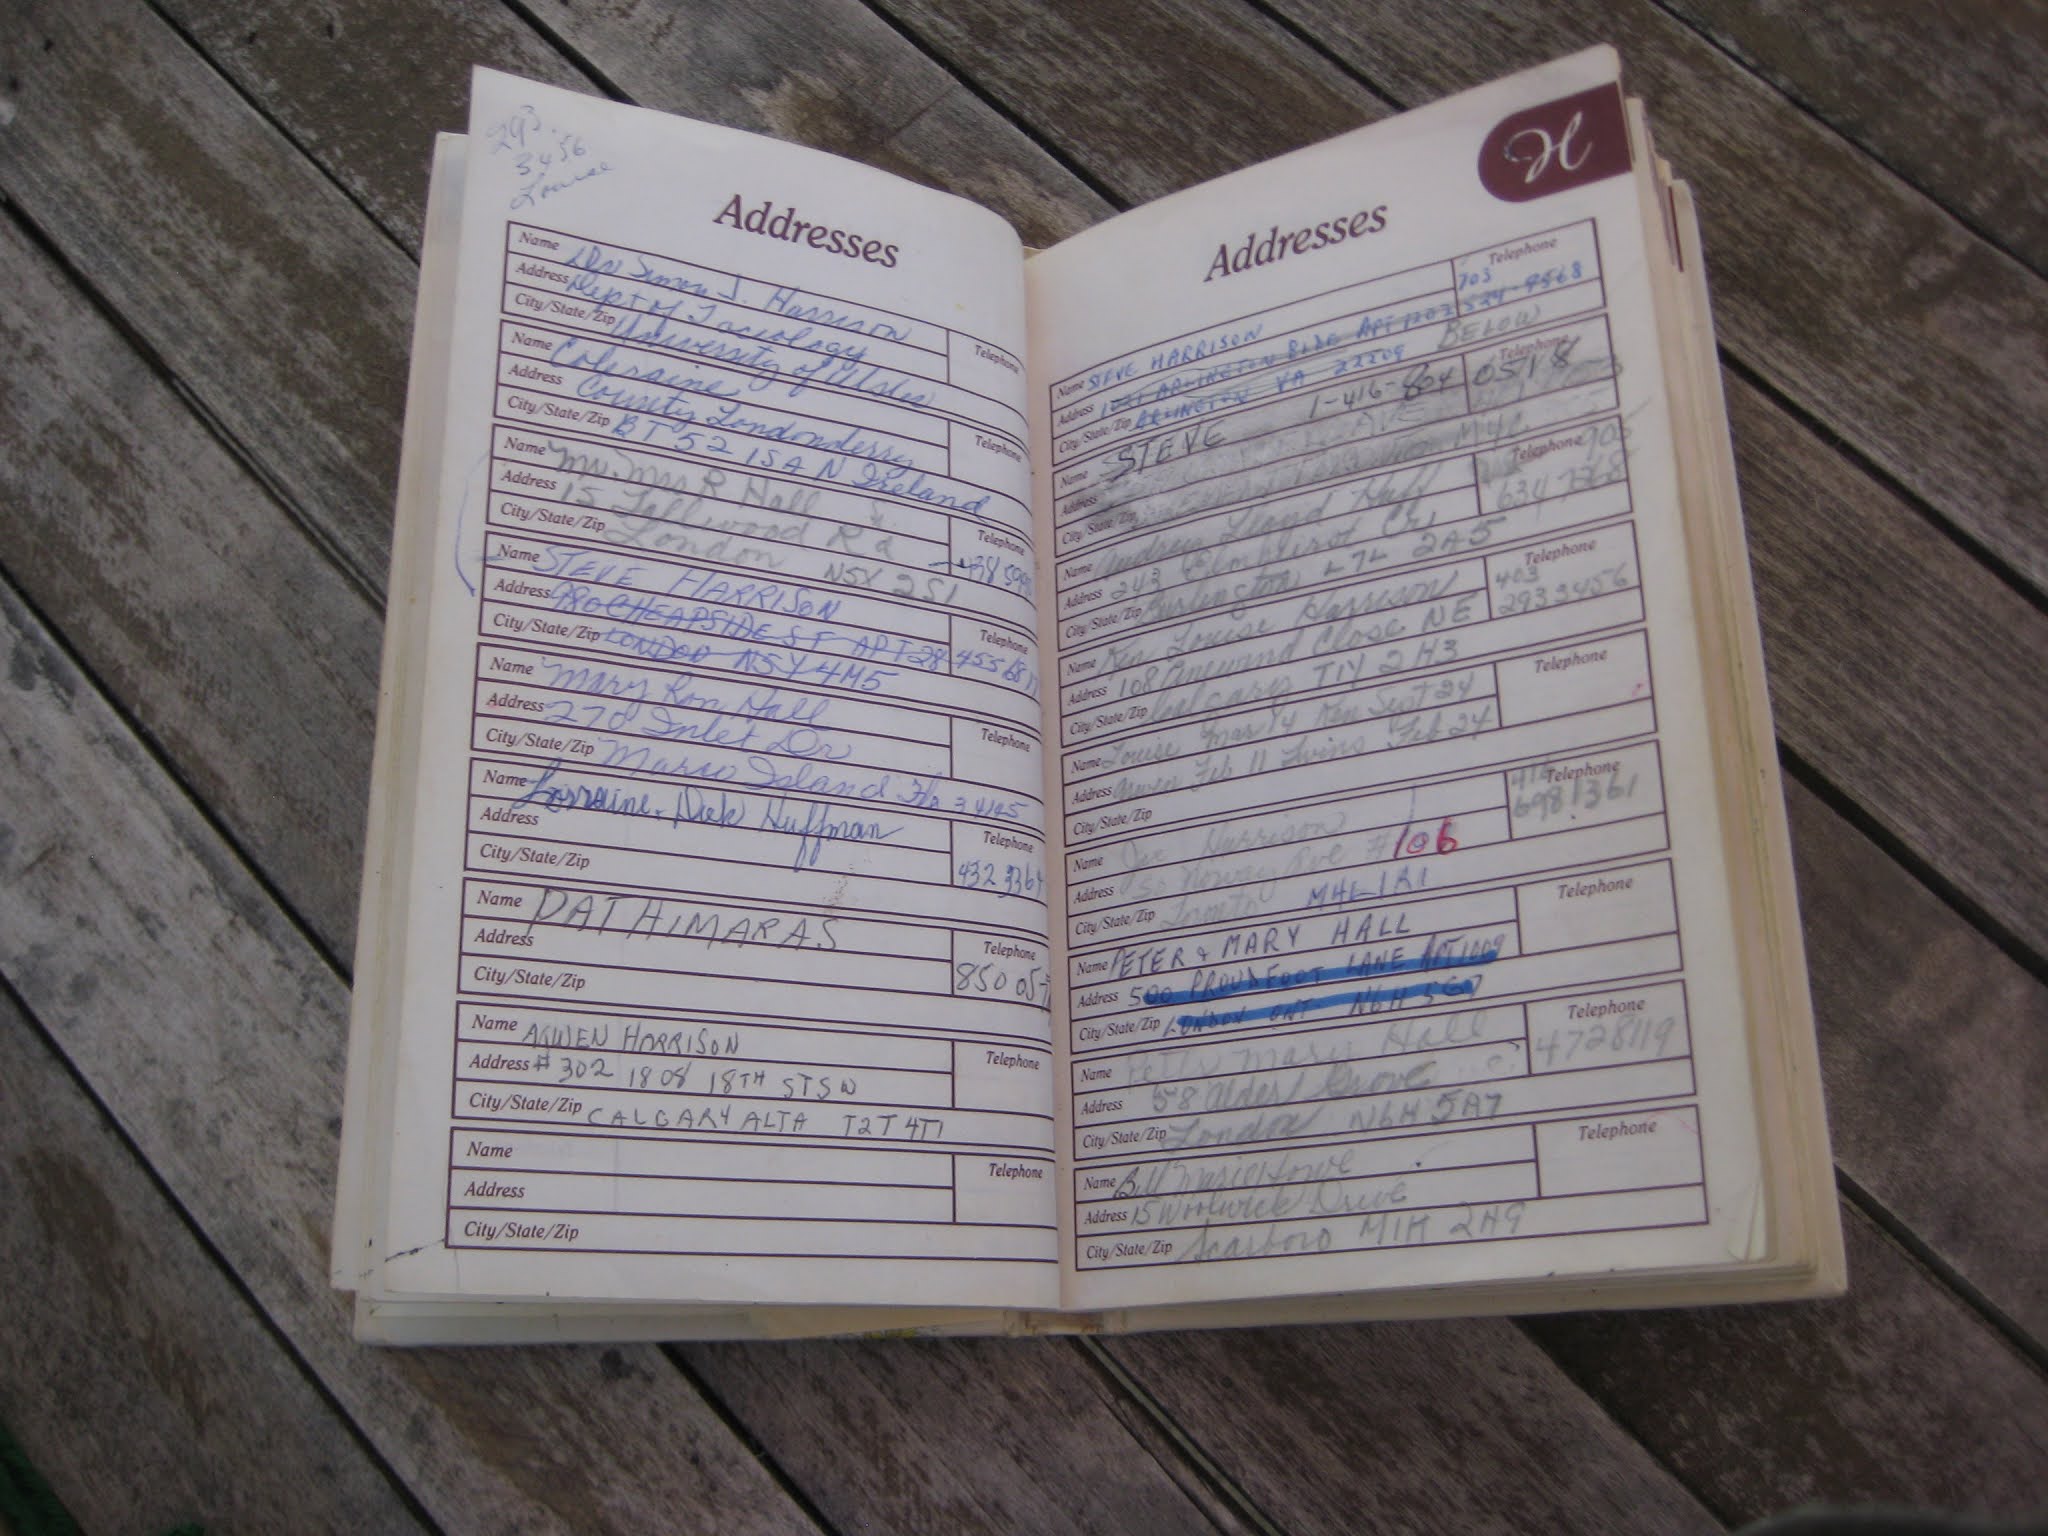 293-
3456
Louise
Addresses
Name Dr Simon J. Harrison
Address Dept of Sociology
Telephone
City/State/Zip University of Ulster
Name Coleraine
Address County Londonderry
Telephone
City/State/Zip BT52 1SA N Ireland
Name Mr. Mrs R Hall
Address 15 Tallwood Rd
Telephone
City/State/Zip London N5X 2S1
Name STEVE HARRISON
Address CHEAPSIDE ST APT 28
Telephone
City/State/Zip LONDON N5Y 4M5
Name Mary Lou Hall
Address 270 Inlet Dr
Telephone
City/State/Zip Marco Island Fla 34145
Name Lorraine & Dick Huffman
Address
Telephone
432 3364
City/State/Zip
Name PAT HIMARAS
Address
Telephone
850 05
City/State/Zip
Name AGWEN HARRISON
Address # 302 1808 18TH ST SW
Telephone
City/State/Zip CALGARY ALTA T2T 4T1
Name
Address
Telephone
City/State/Zip
H
Addresses
Name STEVE HARRISON
Telephone
703
Address ARLINGTON BLDE APT 1202 524-9568
City/State/Zip ARLINGTON VA 22209 BELOW
Name STEVE 1-416-804 0518
Telephone
Address
City/State/Zip
Name Andrew Hall
Telephone 905
634 7368
Address 243
City/State/Zip Burlington L7L 2A5
Name Ken Louise Harrison
Telephone
403
2933456
Address 108 Pinewind Close NE
City/State/Zip Calgary T1Y 2H3
Name Louise Mar 14 Ken Sept 24
Telephone
Address Gwen Feb 11 Twins Feb 24
City/State/Zip
Name Harrison
Telephone
416
6981361
Address 50 Norway Ave #106
City/State/Zip Toronto M4L-1R1
Name PETER & MARY HALL
Telephone
Address 500 PROUDFOOT LANE APT 1009
City/State/Zip LONDON ONT N6H 5G7
Name Peter Mary Hall
Telephone
4728119
Address 58 Alder Grove
City/State/Zip London N6H 5A7
Name Bill Marie Howe
Telephone
Address 15 Woolwick Drive
City/State/Zip Scarboro M1K 2H9